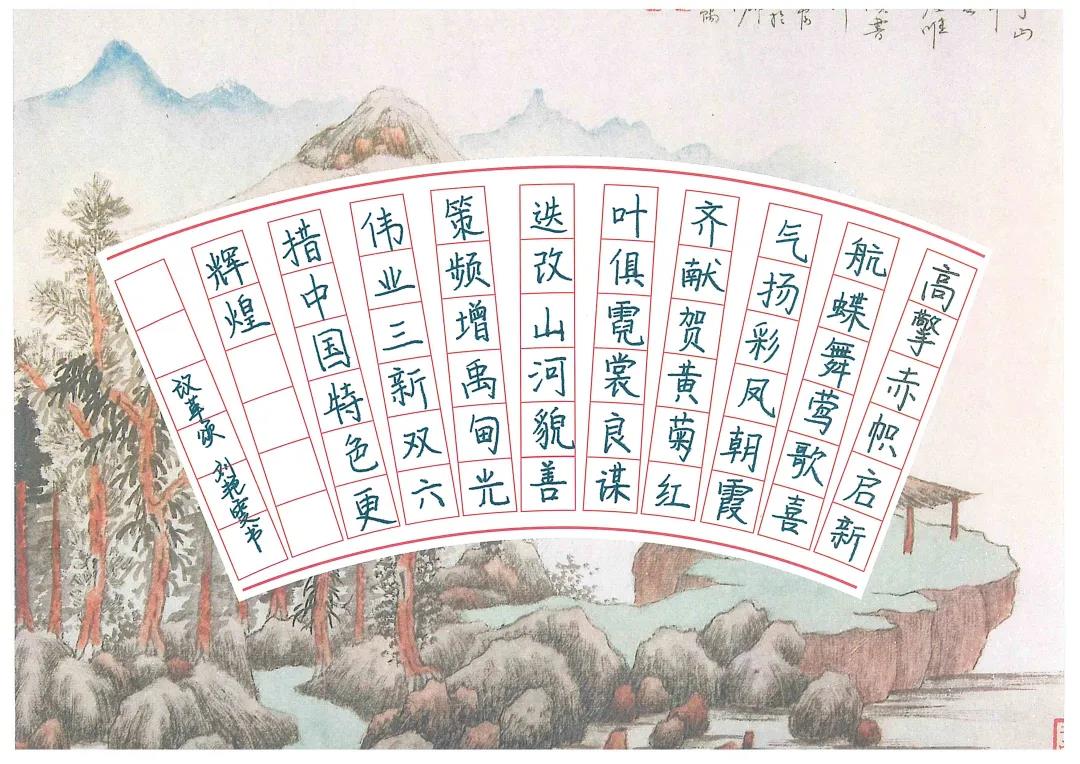 高擎赤帜启新
航蝶舞莺歌喜
气扬彩凤朝霞
齐献贺黄菊红
叶俱霓裳良谋
迭改山河貌善
策频增禹甸光
伟业三新双六
措中国特色更
辉煌
改革颂 刘艳雯书